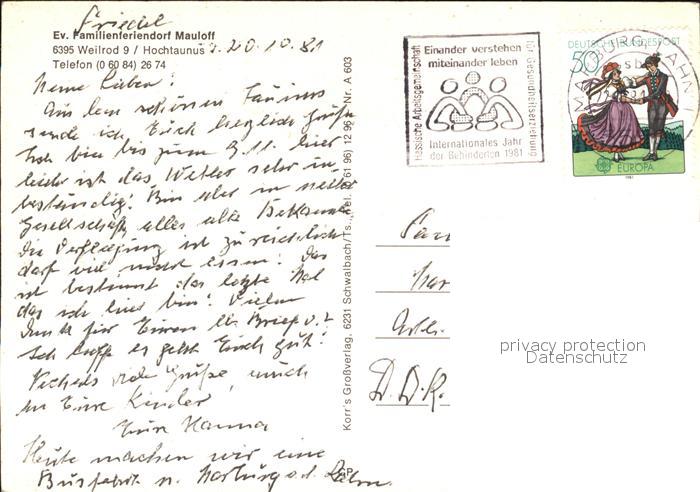 Friedel
Ev. Familienferiendorf Mauloff
6395 Weilrod 9 / Hochtaunus
20.10.81
Telefon (0 60 84) 26 74
Meine Lieben!
Aus dem schönen Taunus
sende ich Euch herzlich Grüße
Ich bin bis zum 9.11. hier
leider ist das Wetter sehr un
beständig! Bin aber in netter
Gesellschaft, alles alte Bekannte
Die Verpflegung ist zu reichlich
darf viel nicht essen! Das
ist bestimmt das letzte Mal
das ich hier bin! Vielen
Dank für Euren lb. Brief v.
Ich hoffe es geht Euch gut!
viele Grüße, auch
an Eure Kinder,
Eure Hanna
Heute machen wir eine
Busfahrt n. Marburg a.d. Lahn.
Korr's Großverlag, 6231 Schwalbach/Ts., Tel. (61 96) 12 96 - Nr. A 603
Hessische Arbeitsgemeinschaft
Einander verstehen
miteinander leben
für Gesundheitserziehung
Internationales Jahr
der Behinderten 1981
DEUTSCHE BUNDESPOST
50
MARBURG, LAHN
EUROPA
1981
D.D.R.
privacy protection
Datenschutz